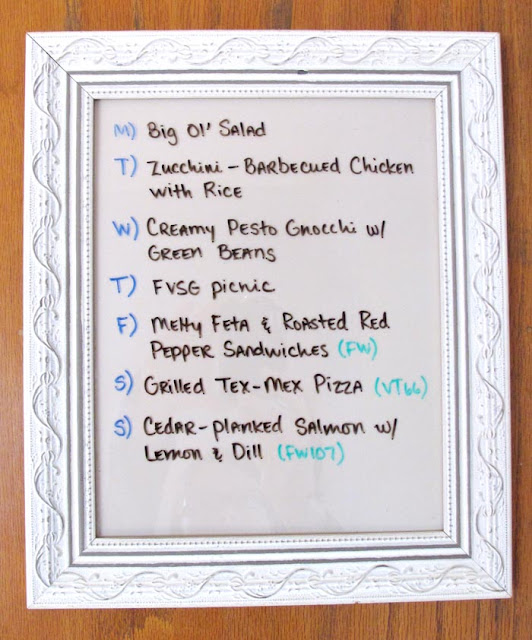 M) Big Ol' Salad
T) Zucchini - Barbecued Chicken
with Rice
W) Creamy Pesto Gnocchi w/
Green Beans
T) FVSG picnic
F) Melty Feta & Roasted Red
Pepper Sandwiches (FW)
S) Grilled Tex-Mex Pizza (VT66)
S) Cedar-planked Salmon w/
Lemon & Dill (FW107)